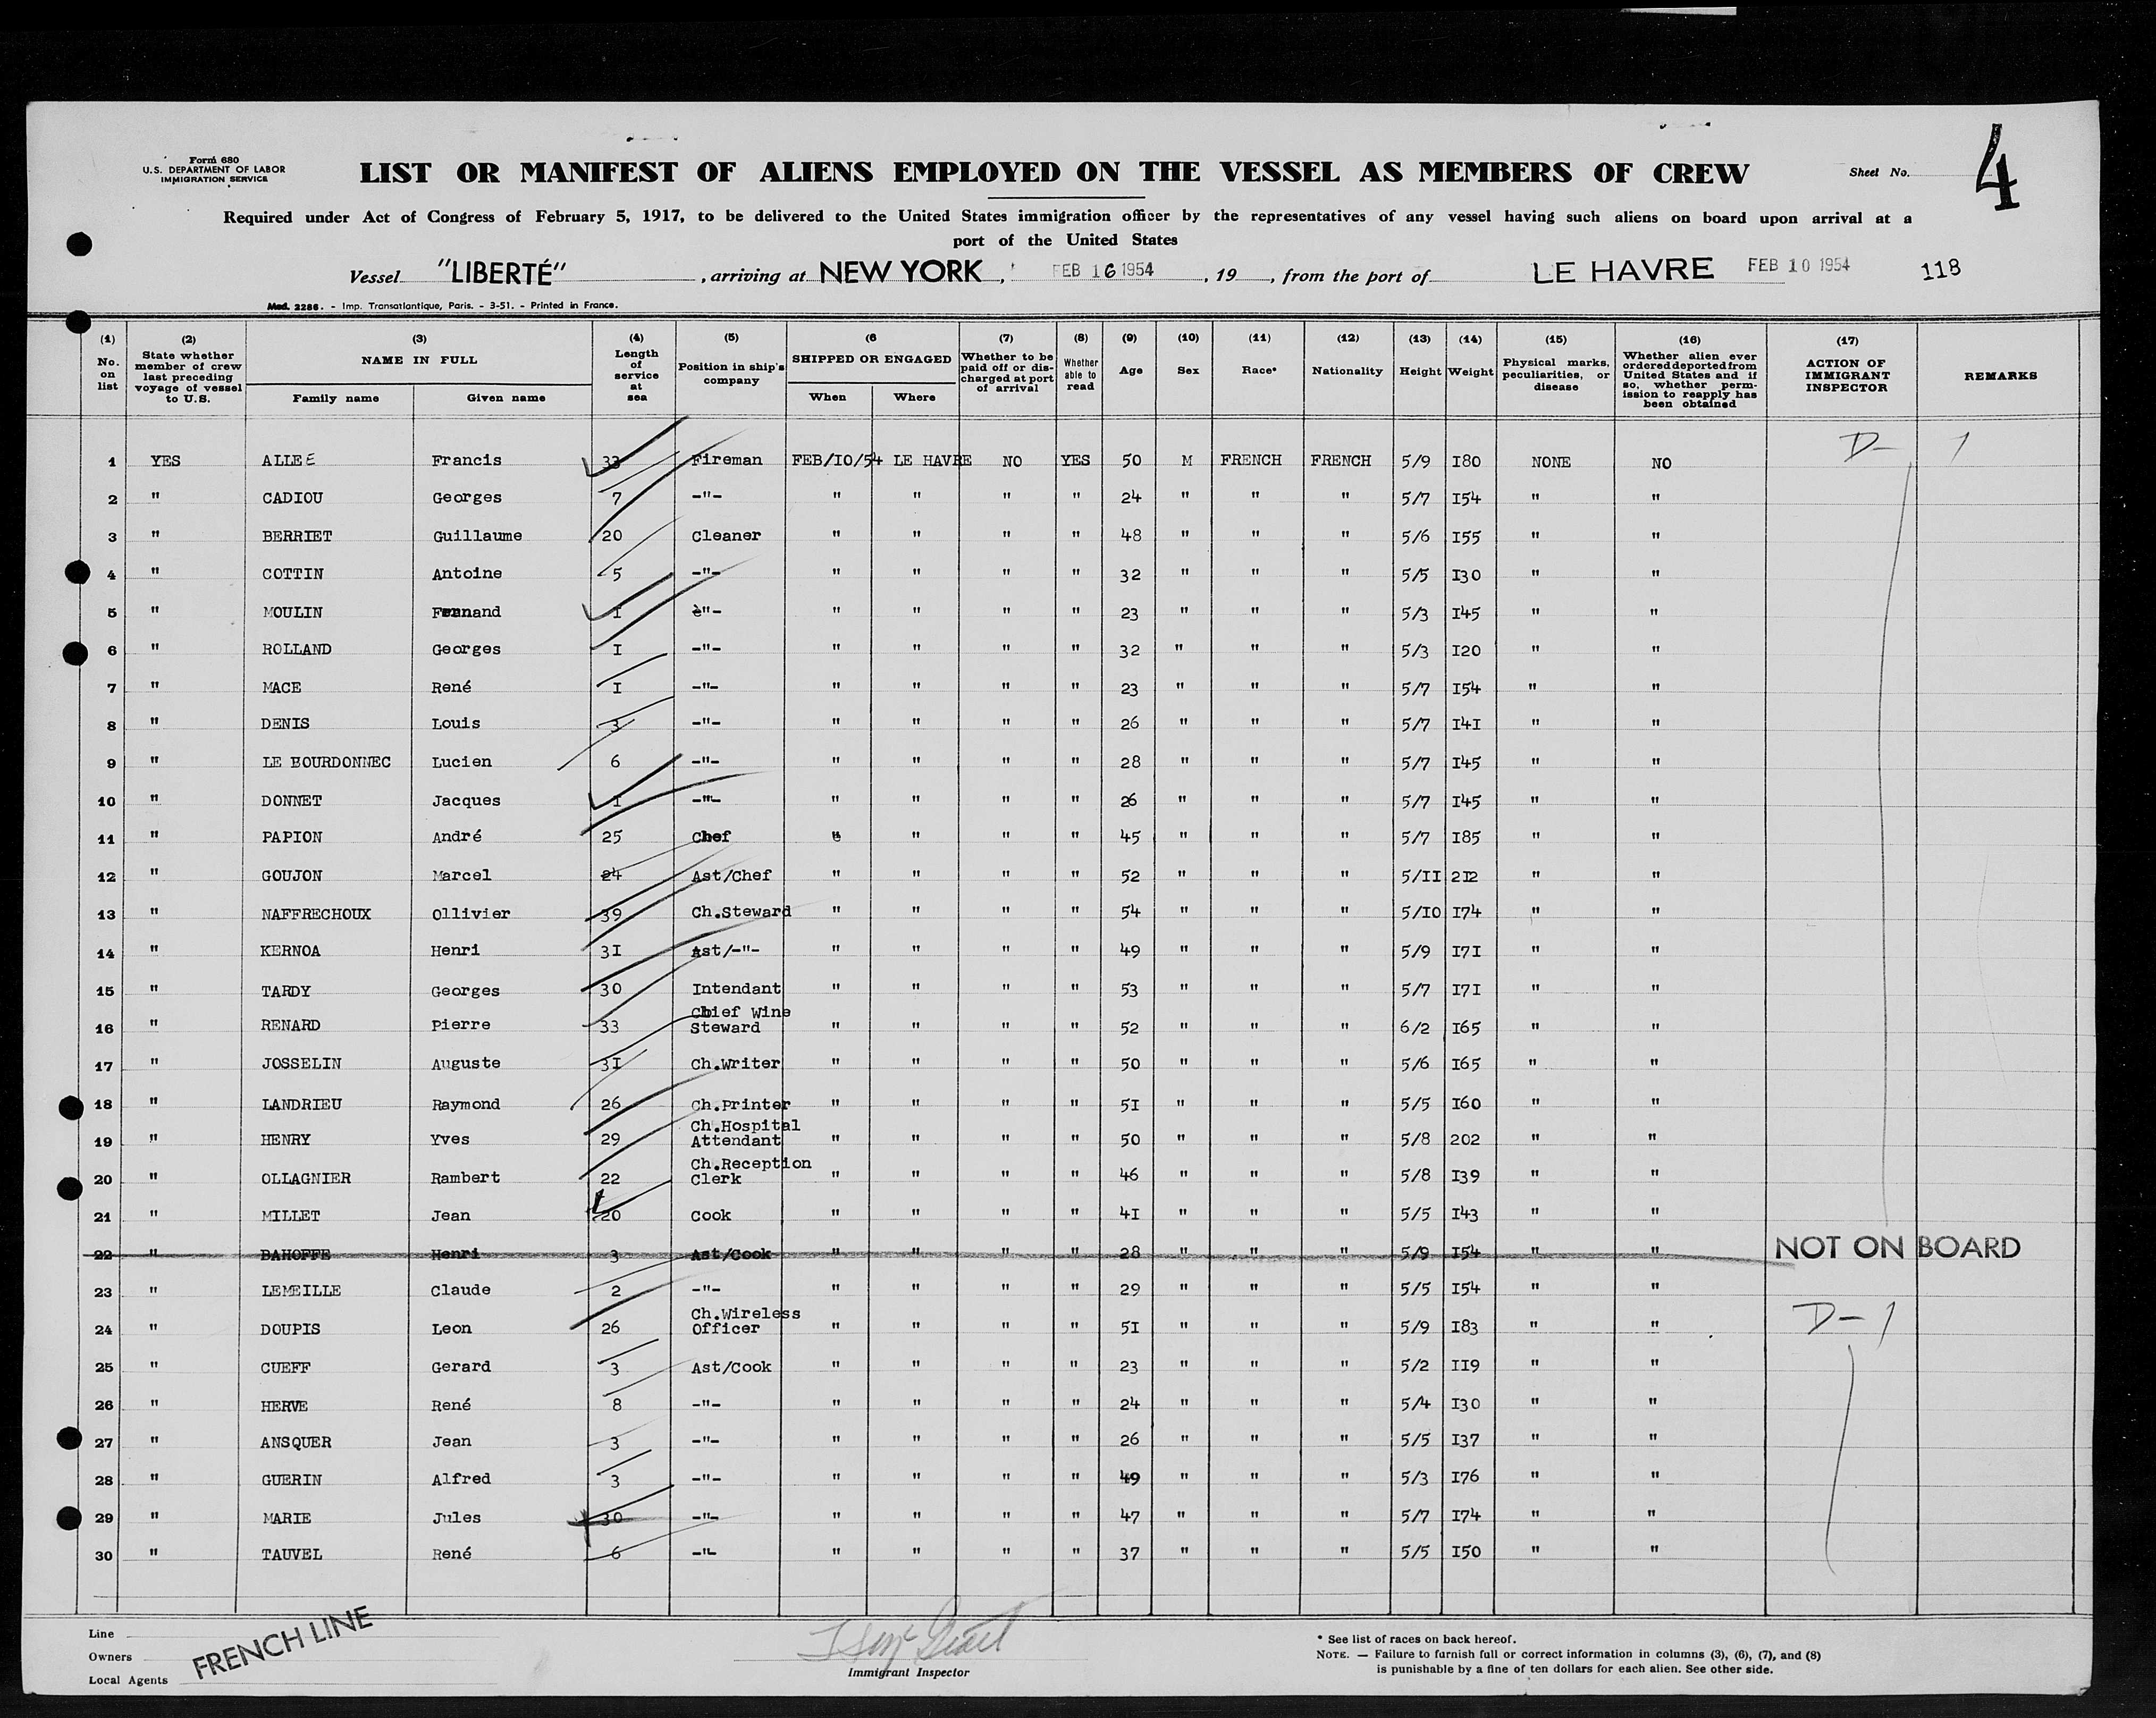 Form 680
U.S. DEPARTMENT OF LABOR
IMMIGRATION SERVICE
LIST OR MANIFEST OF ALIENS EMPLOYED ON THE VESSEL AS MEMBERS OF CREW
Sheet No. 4
Required under Act of Congress of February 5, 1917, to be delivered to the United States immigration officer by the representatives of any vessel having such aliens on board upon arrival at a
port of the United States
Vessel "LIBERTÉ", arriving at NEW YORK, FEB 16 1954, 19 , from the port of LE HAVRE FEB 10 1954 118
Mod. 2286. - Imp. Transatlantique, Paris. - 3-51. - Printed in France.
(1) No. on list (2) State whether member of crew last preceding voyage of vessel to U.S. (3) NAME IN FULL Family name Given name (4) Length of service at sea (5) Position in ship's company (6 SHIPPED OR ENGAGED When Where (7) Whether to be paid off or discharged at port of arrival (8) Whether able to read (9) Age (10) Sex (11) Race* (12) Nationality (13) Height (14) Weight (15) Physical marks, peculiarities, or disease (16) Whether alien ever ordered deported from United States and if so, whether permission to reapply has been obtained (17) ACTION OF IMMIGRANT INSPECTOR REMARKS
1 YES ALLEE Francis 33 Fireman FEB/I0/54 LE HAVRE NO YES 50 M FRENCH FRENCH 5/9 I80 NONE NO D- 1
2 " CADIOU Georges 7 -"- " " " " 24 " " " 5/7 I54 " "
3 " BERRIET Guillaume 20 Cleaner " " " " 48 " " " 5/6 I55 " "
4 " COTTIN Antoine 5 -"- " " " " 32 " " " 5/5 I30 " "
5 " MOULIN Fernand I è"- " " " " 23 " " " 5/3 I45 " "
6 " ROLLAND Georges I -"- " " " " 32 " " " 5/3 I20 " "
7 " MACE René I -"- " " " " 23 " " " 5/7 I54 " "
8 " DENIS Louis 3 -"- " " " " 26 " " " 5/7 I4I " "
9 " LE BOURDONNEC Lucien 6 -"- " " " " 28 " " " 5/7 I45 " "
10 " DONNET Jacques I -"- " " " " 26 " " " 5/7 I45 " "
11 " PAPION André 25 Chef " " " " 45 " " " 5/7 I85 " "
12 " GOUJON Marcel 24 Ast/Chef " " " " 52 " " " 5/II 2I2 " "
13 " NAFFRECHOUX Ollivier 39 Ch.Steward " " " " 54 " " " 5/I0 I74 " "
14 " KERNOA Henri 3I Ast/-"- " " " " 49 " " " 5/9 I7I " "
15 " TARDY Georges 30 Intendant " " " " 53 " " " 5/7 I7I " "
16 " RENARD Pierre 33 Chief Wine Steward " " " " 52 " " " 6/2 I65 " "
17 " JOSSELIN Auguste 3I Ch.Writer " " " " 50 " " " 5/6 I65 " "
18 " LANDRIEU Raymond 26 Ch.Printer " " " " 5I " " " 5/5 I60 " "
19 " HENRY Yves 29 Ch.Hospital Attendant " " " " 50 " " " 5/8 202 " "
20 " OLLAGNIER Rambert 22 Ch.Reception Clerk " " " " 46 " " " 5/8 I39 " "
21 " MILLET Jean 20 Cook " " " " 4I " " " 5/5 I43 " "
22 " BAHOFFE Henri 3 Ast/Cook " " " " 28 " " " 5/9 I54 " " NOT ON BOARD
23 " LEMEILLE Claude 2 -"- " " " " 29 " " " 5/5 I54 " "
24 " DOUPIS Leon 26 Ch.Wireless Officer " " " " 5I " " " 5/9 I83 " " D-1
25 " CUEFF Gerard 3 Ast/Cook " " " " 23 " " " 5/2 II9 " "
26 " HERVE René 8 -"- " " " " 24 " " " 5/4 I30 " "
27 " ANSQUER Jean 3 -"- " " " " 26 " " " 5/5 I37 " "
28 " GUERIN Alfred 3 -"- " " " " 49 " " " 5/3 I76 " "
29 " MARIE Jules 30 -"- " " " " 47 " " " 5/7 I74 " "
30 " TAUVEL René 6 -"- " " " " 37 " " " 5/5 I50 " "
Line
Owners
Local Agents
FRENCH LINE
Immigrant Inspector
* See list of races on back hereof.
NOTE. — Failure to furnish full or correct information in columns (3), (6), (7), and (8)
is punishable by a fine of ten dollars for each alien. See other side.